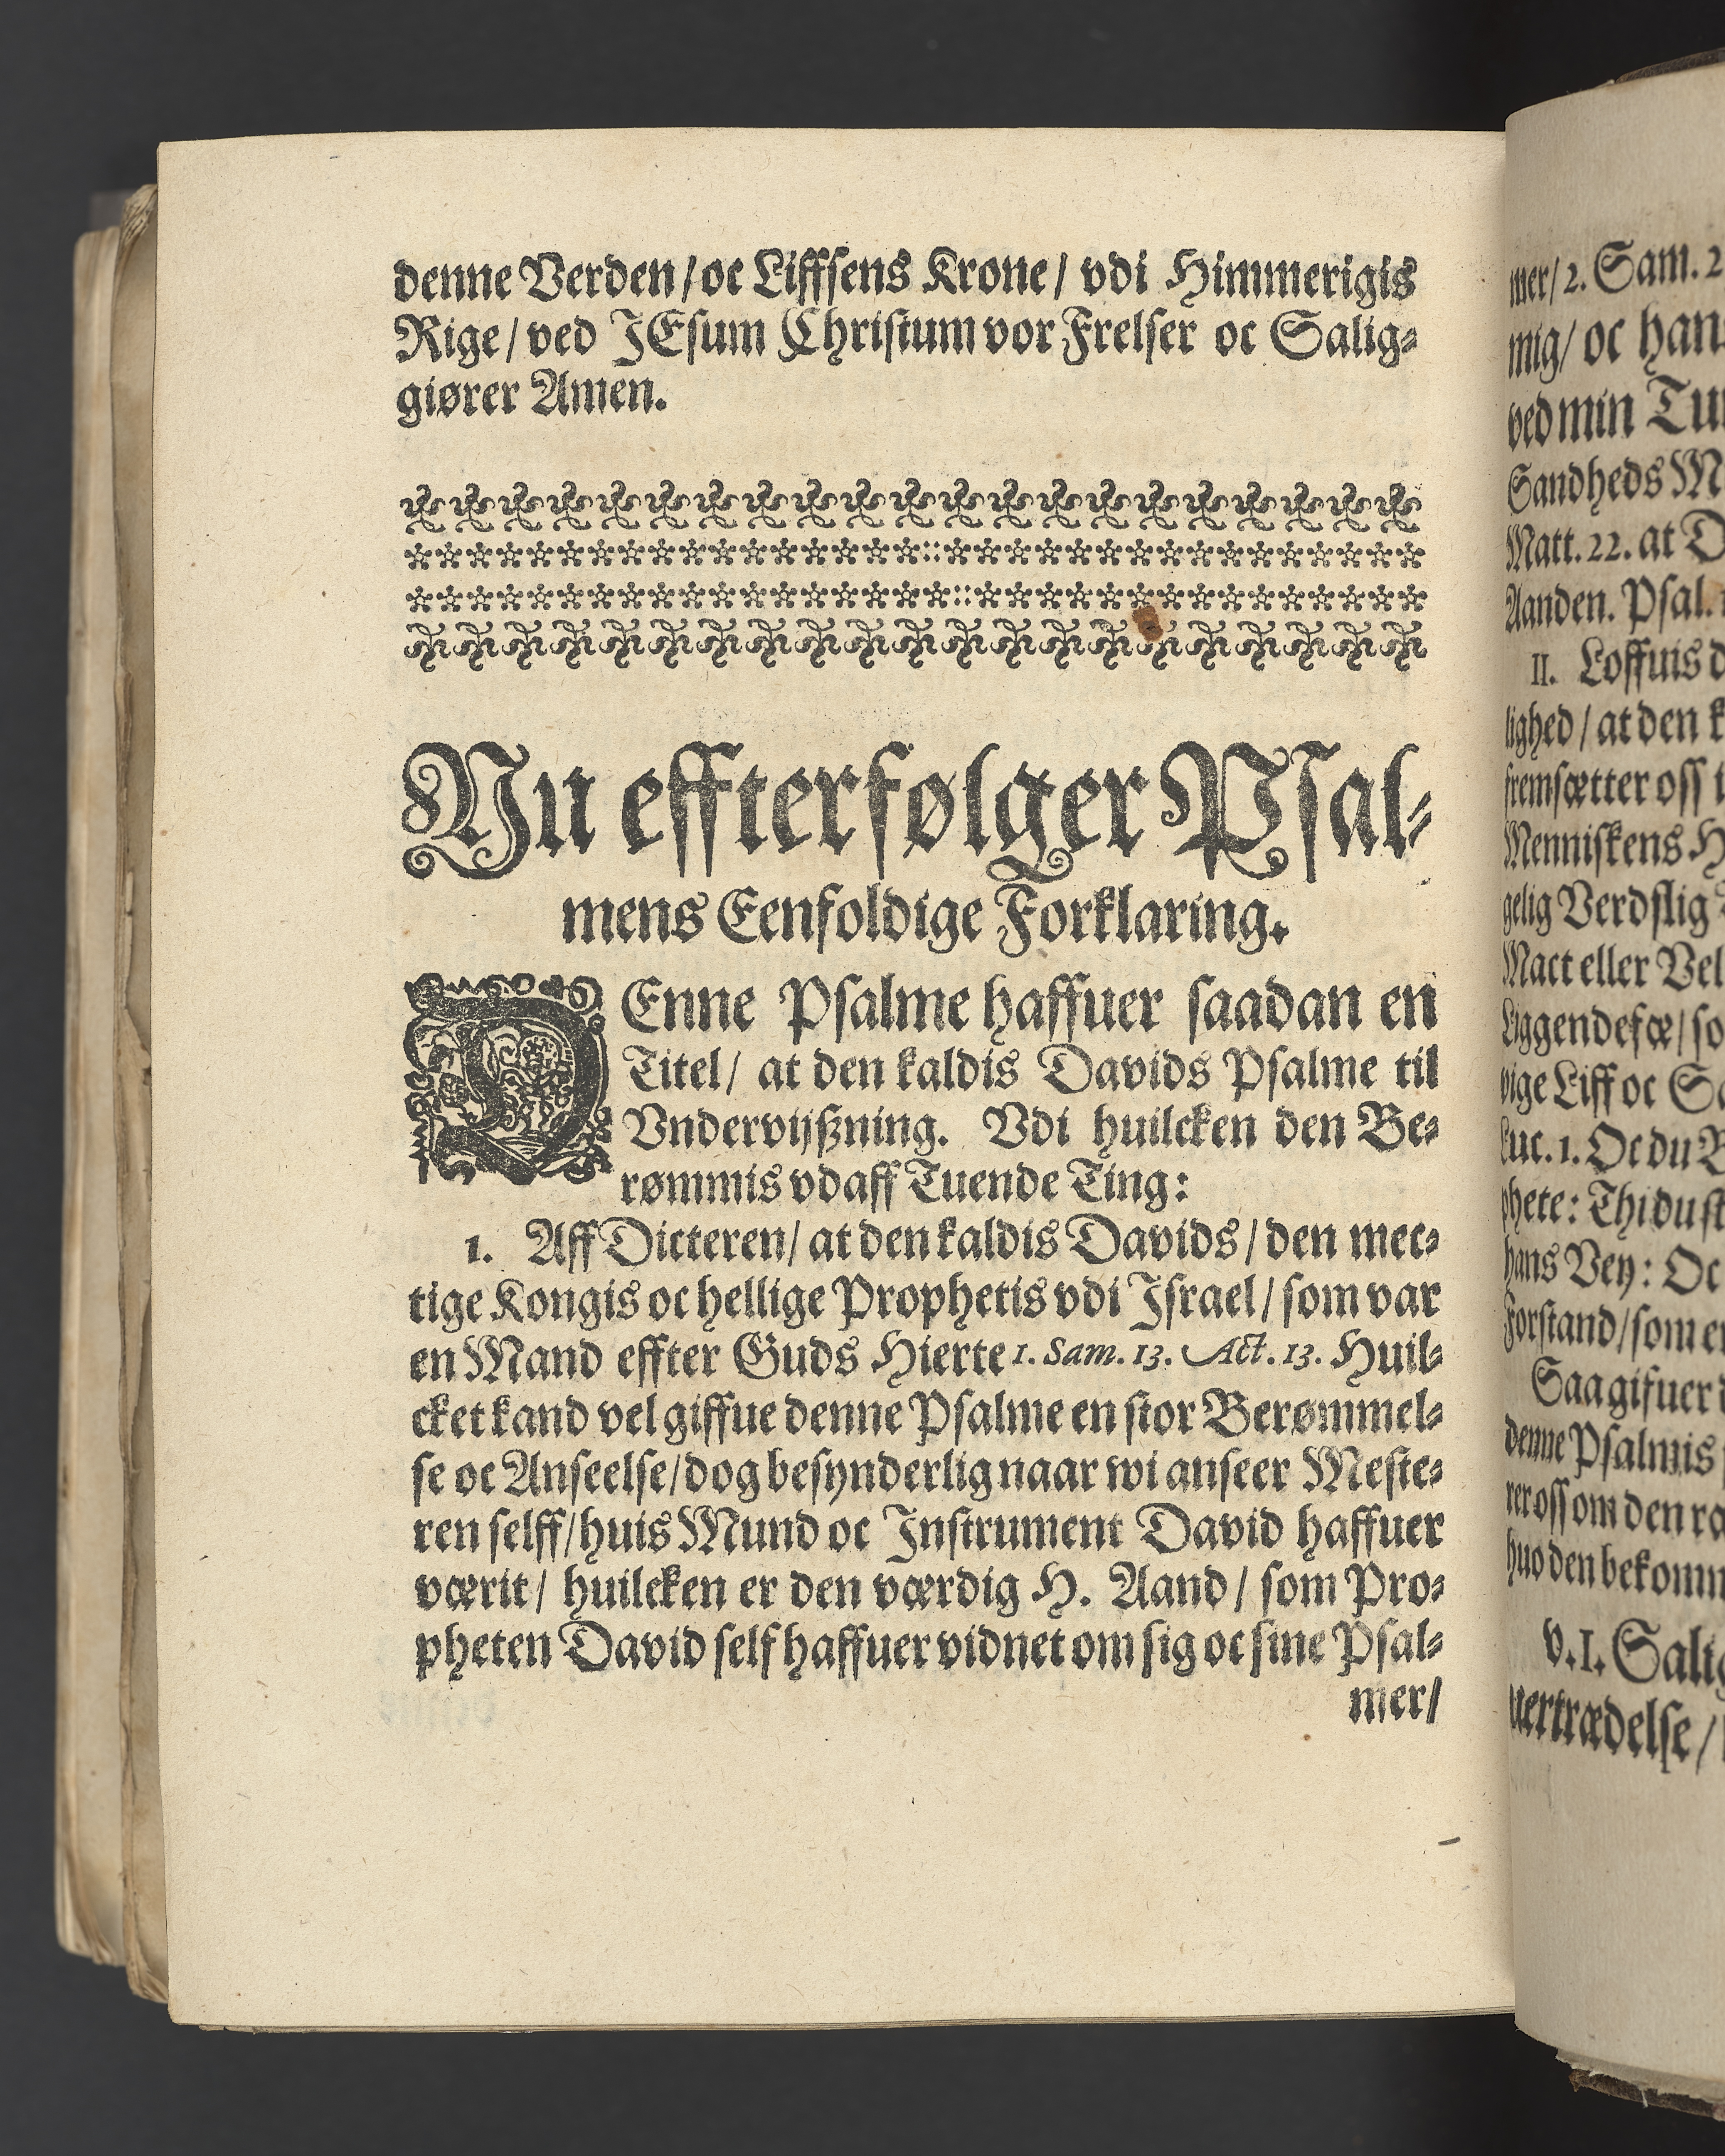 denne Verden/ oc Liffsens Krone/ vdi Himmerigis
Rige/ ved JEsum Christum vor Frelser oc Salig⸗
giører Amen.
Nu effterfølger Psal⸗
mens Eenfoldige Forklaring.
DEnne Psalme haffuer saadan en
Titel/ at den kaldis Davids Psalme til
Vndervijßning. Vdi huilcken den Be⸗
rømmis vdaff Tuende Ting:
1. Aff Dicteren/ at den kaldis Davids/ den mec⸗
tige Kongis oc hellige Prophetis vdi Israel/ som var
en Mand effter Guds Hierte 1. Sam. 13. Act. 13. Huil⸗
cket kand vel giffue denne Psalme en stor Berømmel⸗
se oc Anseelse/ dog besynderlig naar wi anseer Meste⸗
ren selff/ huis Mund oc Instrument David haffuer
værit/ huilcken er den værdig H. Aand/ som Pro⸗
pheten David self haffuer vidnet om sig oc sine Psal⸗
mer/
mer/ 2. Sam. 2
mig/ oc han
ved min
Sandheds
Matt. 22. at
Aanden. Psal.
II. Loffuis
lighed/ at den
fremsætter oss
Menniskens
gelig Verdslig
Mact eller
Liggendefæ/
vige Liff oc
Luc. 1. Oc du
phete: Thi du
hans Vey: Oc
Forstand/ som
Saa gifuer
denne Psalmis
rer oss om den
huo den
v. 1.
uertrædelse/